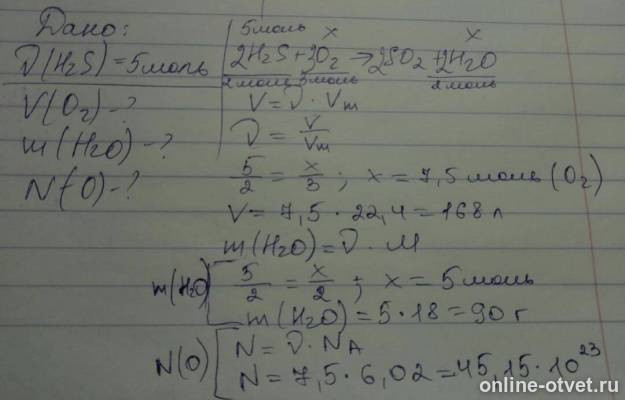 Дано:
ν(H₂S) = 5 моль
V(O₂) - ?
m(H₂O) - ?
N(O) - ?
5 моль x x
2H₂S + 3O₂ → 2SO₂ + 2H₂O
2 моль 3 моль 2 моль
V = ν · Vm
ν = V/Vm
5/2 = x/3 ; x = 7,5 моль (O₂)
V = 7,5 · 22,4 = 168 л
m(H₂O) = ν · M
m(H₂O) 5/2 = x/2 ; x = 5 моль
m(H₂O) = 5 · 18 = 90 г
N(O) N = ν · NA
N = 7,5 · 6,02 = 45,15 · 10²³
online-otvet.ru